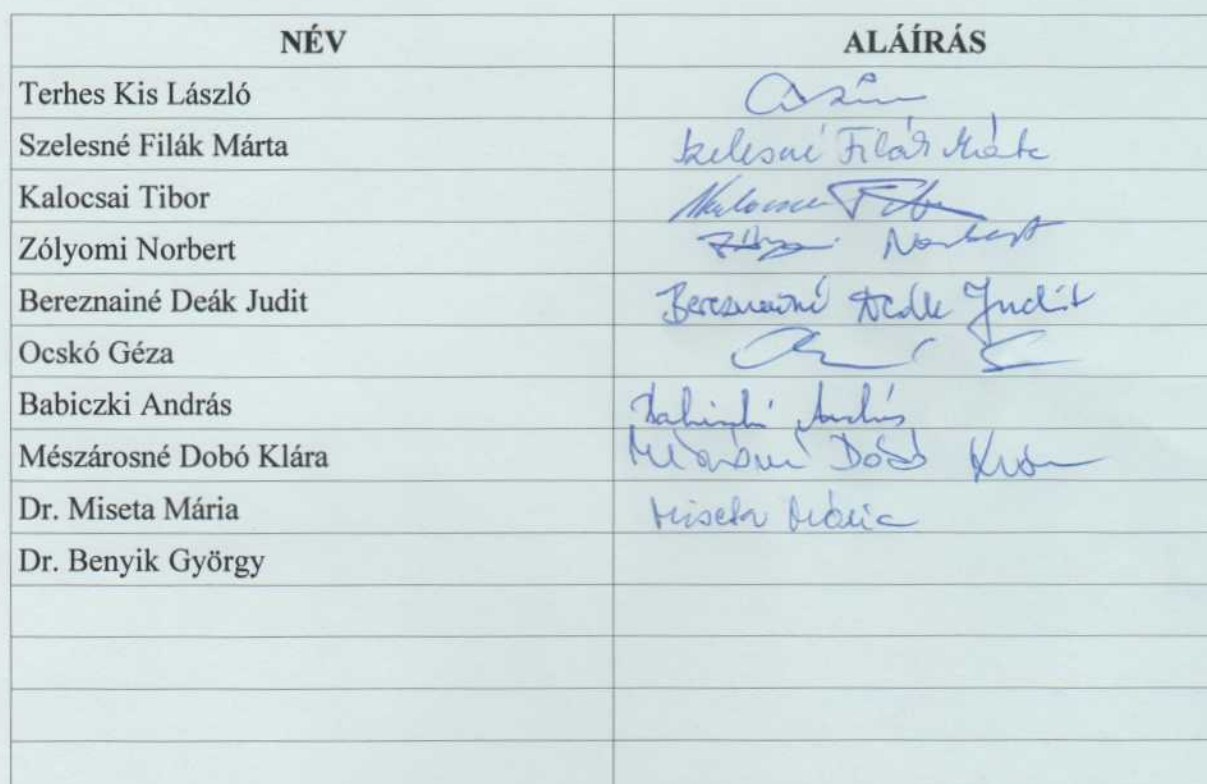 NÉV ALÁÍRÁS
Terhes Kis László
Szelesné Filák Márta Szelesné Filák Márta
Kalocsai Tibor Kalocsai
Zólyomi Norbert Norbert
Bereznainé Deák Judit Bereznainé Deák Judit
Ocskó Géza
Babiczki András András
Mészárosné Dobó Klára Dobó
Dr. Miseta Mária Miseta Mária
Dr. Benyik György